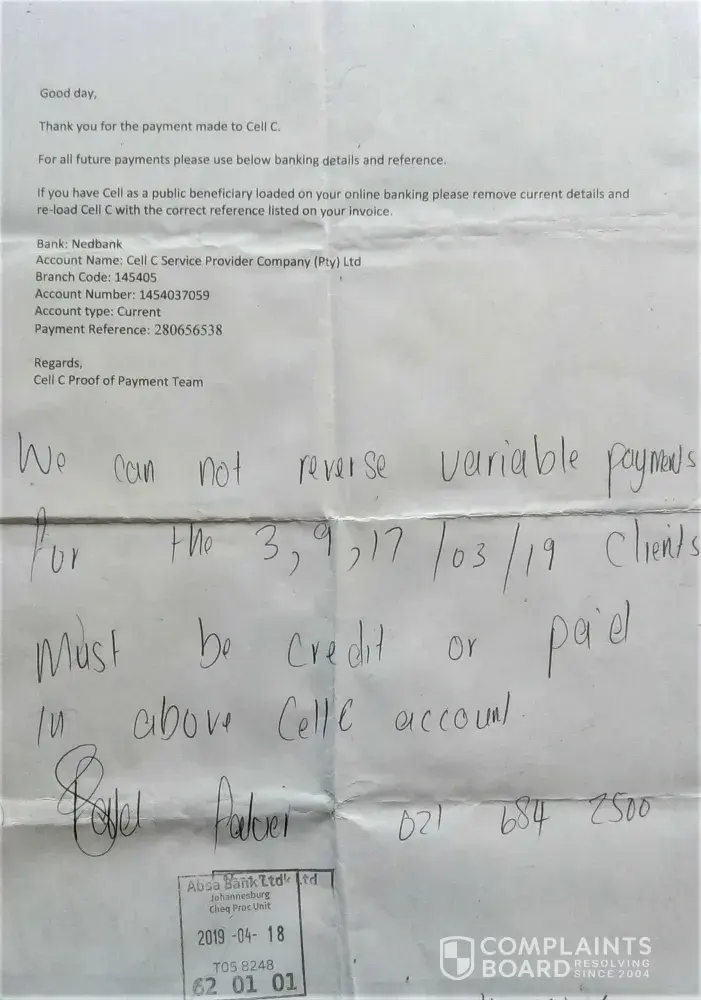 Good day,
Thank you for the payment made to Cell C.
For all future payments please use below banking details and reference.
If you have Cell as a public beneficiary loaded on your online banking please remove current details and
re-load Cell C with the correct reference listed on your invoice.
Bank: Nedbank
Account Name: Cell C Service Provider Company (Pty) Ltd
Branch Code: 145405
Account Number: 1454037059
Account type: Current
Payment Reference: 280656538
Regards,
Cell C Proof of Payment Team
We can not reverse variable payments
for the 3,9,17/03/19 Clients
Must be credit or paid
in above Cell C account.
021 684 2500
Absa Bank Ltd Ltd
Johannesburg
Cheq Proc Unit
2019 -04- 18
TOS 8248
62 01 01
COMPLAINTS
BOARD RESOLVING
SINCE 2004